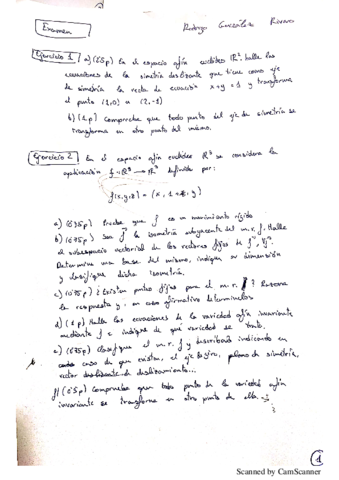 Examen
Rodrigo González
Ejercicio 1 a) (1'5p) En el espacio afín euclídeo R² halla las
ecuaciones de la simetría deslizante que tiene como eje
de simetría la recta de ecuación x+y=1 y transforma
el punto (1,0) a (2,-1)
b) (1p) Compruebe que todo punto del eje de simetría se
transforma en otro punto del mismo.
Ejercicio 2 En el espacio afín euclídeo R³ se considera la
aplicación f: R³ → R³ definida por:
f(x,y,z) = (x, 1+z, y)
a) (0'75p) Pruebe que f es un movimiento rígido
b) (0'75p) Sea f⃗ la isometría subyacente del m.r. f. Halle
el subespacio vectorial de los vectores fijos de f⃗
Determine una base del mismo, indique su dimensión
y clasifique dicha isometría.
c) (0'75p) ¿Existen puntos fijos para el m.r. f? Razone
la respuesta y, en caso afirmativo determínelos
d) (1p) Halle las ecuaciones de la variedad afín invariante
mediante f e indique de qué variedad se trata.
e) (0'75p) Clasifique el m.r. f y descríbalo indicando en
caso de que existan, el eje de giro, plano de simetría,
vector de deslizamiento...
f) (0'5p) Compruebe que todo punto de la variedad afín
invariante se transforma en otro punto de ella.
1
Scanned by CamScanner